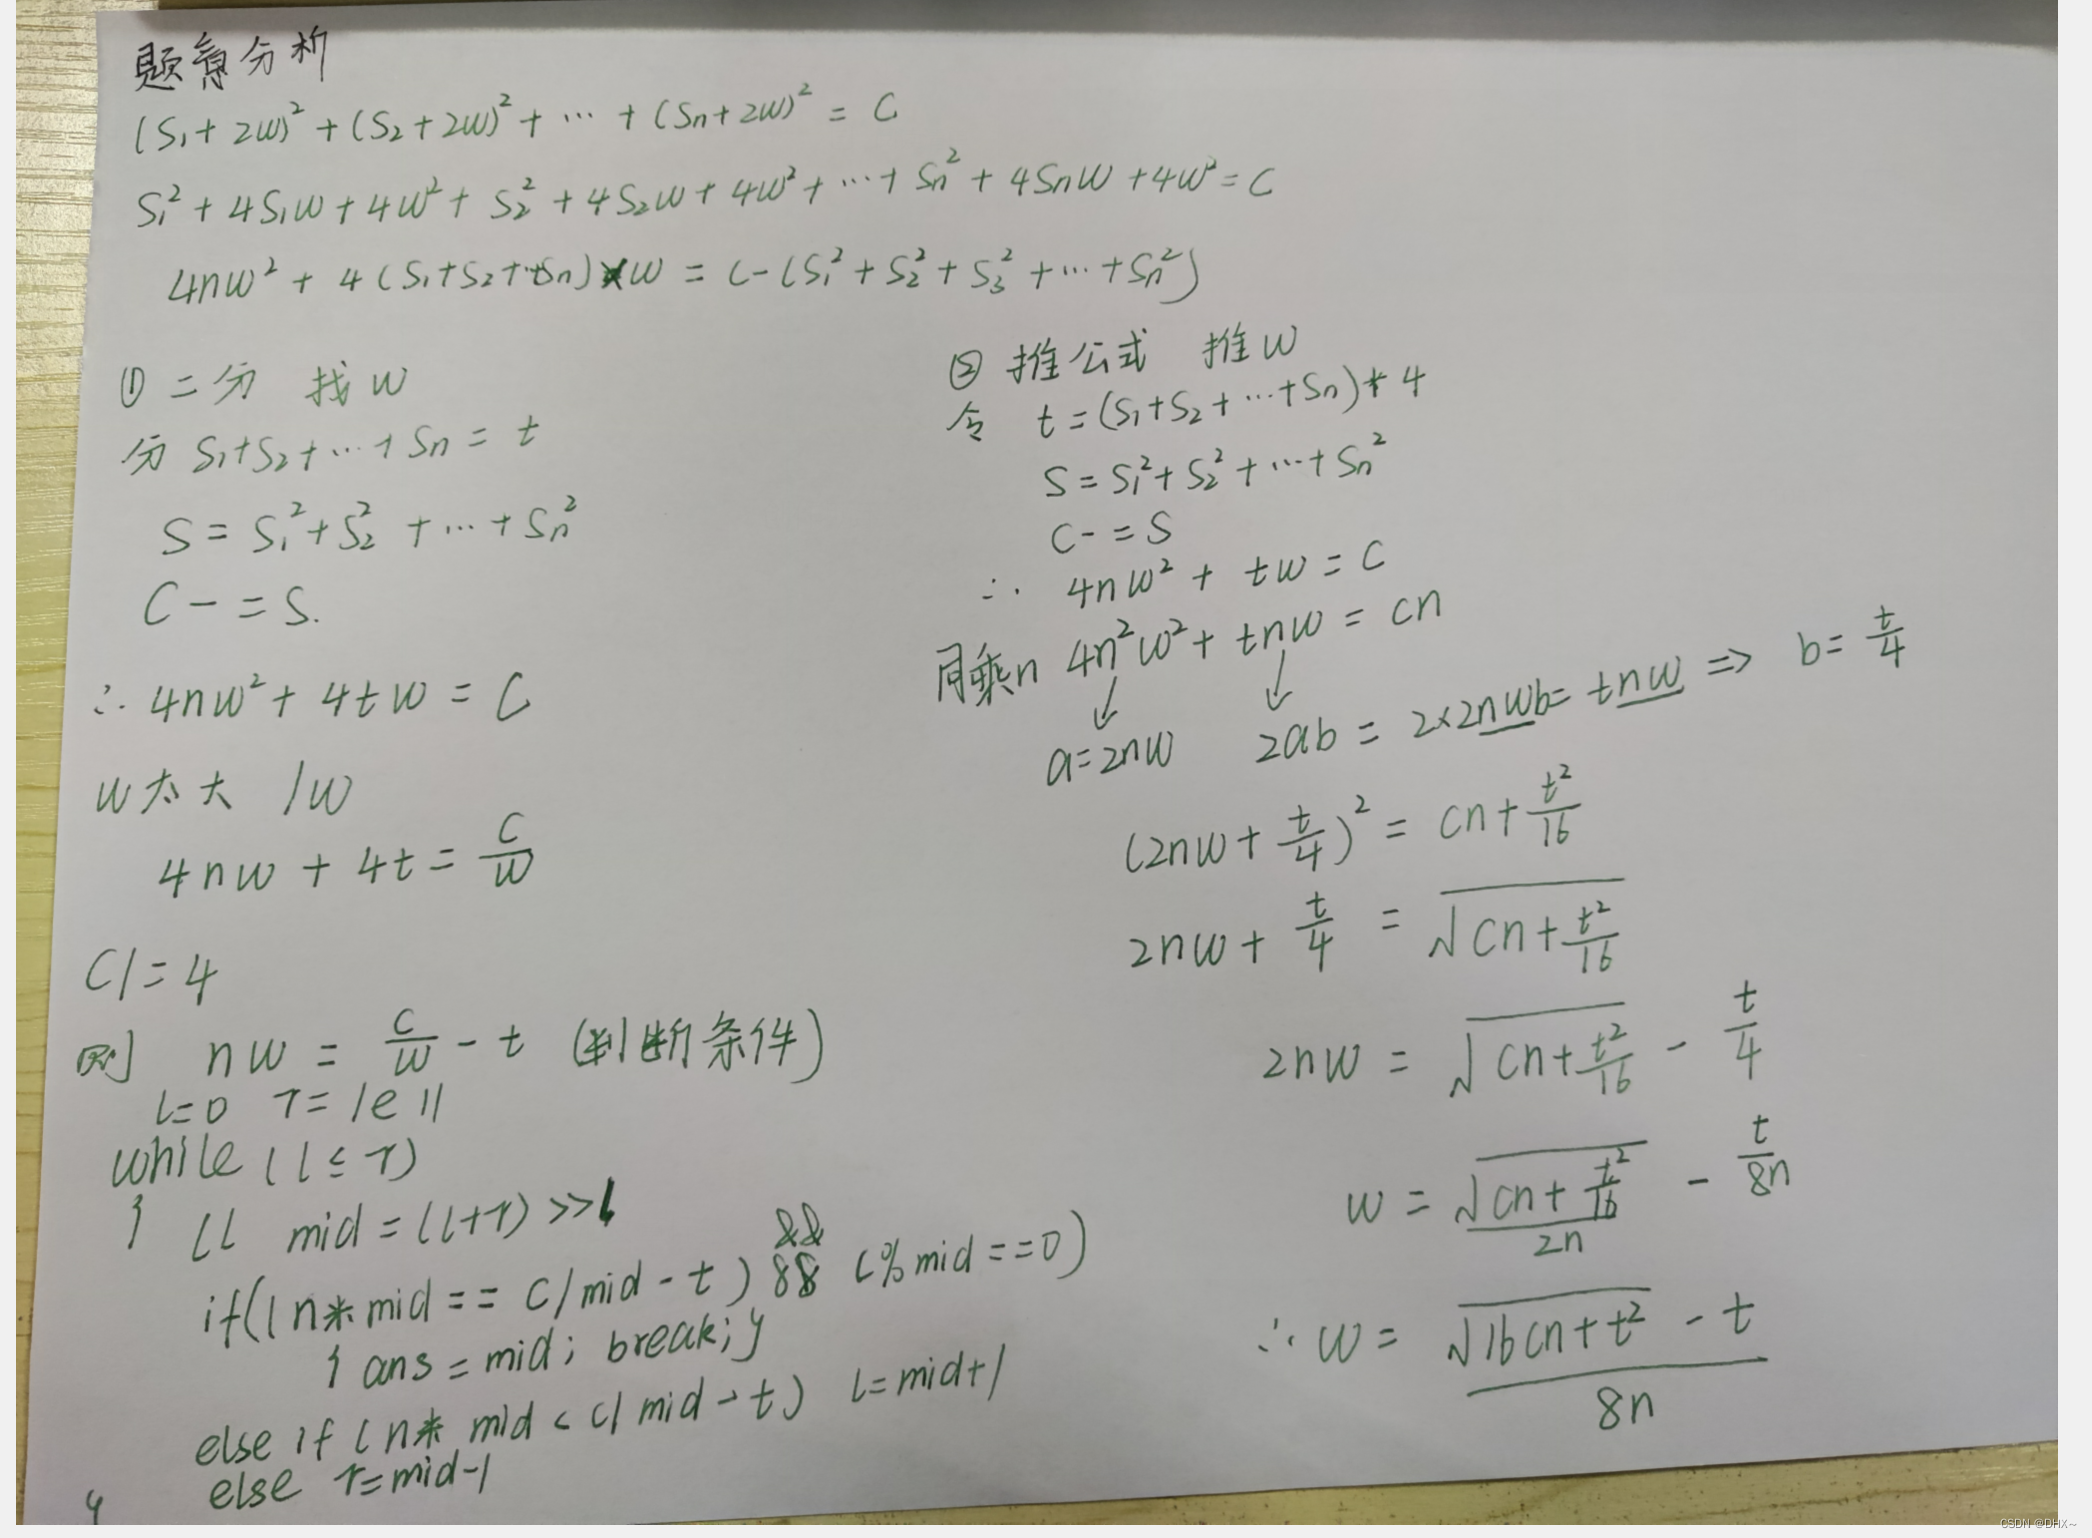 题意分析
(S₁+2W)²+(S₂+2W)²+…+(Sn+2W)²=C
S₁²+4S₁W+4W²+S₂²+4S₂W+4W²+…+Sn²+4SnW+4W²=C
4nW²+4(S₁+S₂+…+Sn)×W=C-(S₁²+S₂²+S₃²+…+Sn²)
① 二分 找W
分 S₁+S₂+…+Sn=t
S=S₁²+S₂²+…+Sn²
C-=S.
∴ 4nW²+4tW=C
W太大 /W
4nW+4t=C/W
C/=4
则 nW=C/W-t (判断条件)
l=0 r=1e11
while(l≤r)
{ LL mid=(l+r)>>1
&&
if((n*mid==C/mid-t) && (%mid==0)
{ans=mid; break;}
else if(n*mid<C/mid-t) l=mid+1
else r=mid-1
}
② 推公式 推W
令 t=(S₁+S₂+…+Sn)*4
S=S₁²+S₂²+…+Sn²
C-=S
∴ 4nW²+tW=C
同乘n 4n²W²+tnW=Cn
a=2nW 2ab=2×2nWb=tnW => b=t/4
(2nW+t/4)²=Cn+t²/16
2nW+t/4=√(Cn+t²/16)
2nW=√(Cn+t²/16)-t/4
W=√(Cn+t²/16)/2n-t/8n
∴ W=(√(16Cn+t²)-t)/8n
CSDN @DHX~